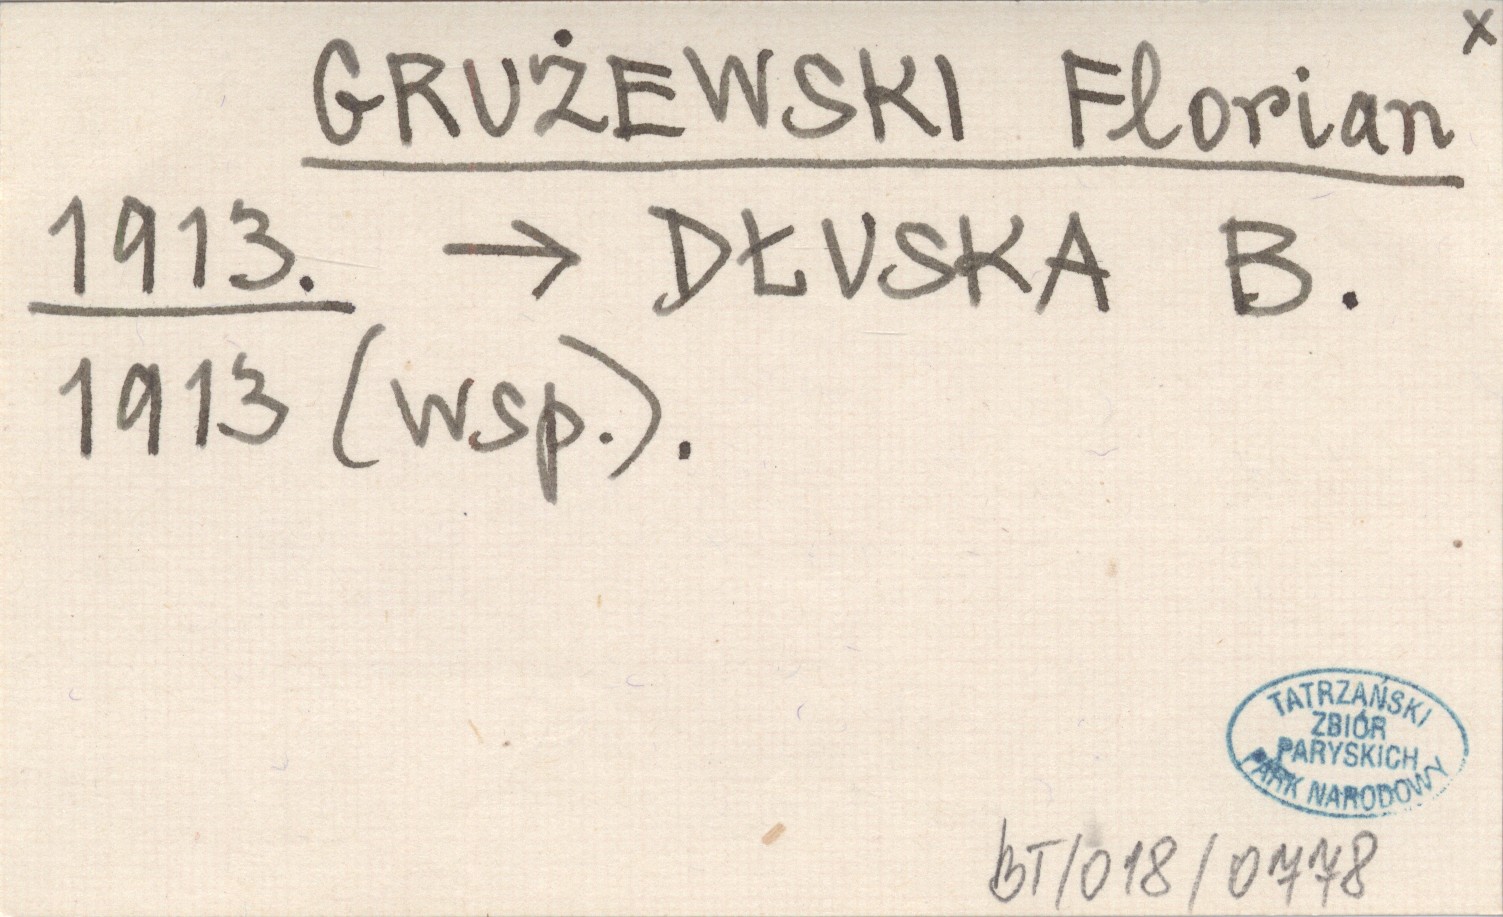 x
GRUŻEWSKI Florian
1913. → DŁUSKA B.
1913 (wsp.).
TATRZAŃSKI
ZBIÓR
PARYSKICH
PARK NARODOWY
BT/018/0778